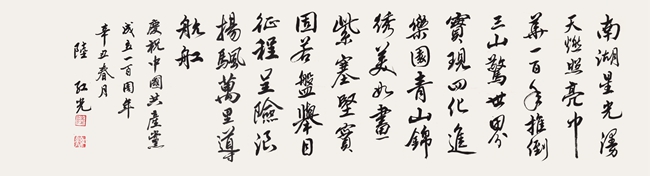 南湖星光漫
天燃照亮中
華一百年推倒
三山驚世界
實現四化進
樂園青山錦
綉美如畫
紫塞堅實
固若盤舉目
征程呈險浪
揚颿萬里導
航舡
慶祝中國共產黨
成立一百周年
辛丑春月
陸紅光